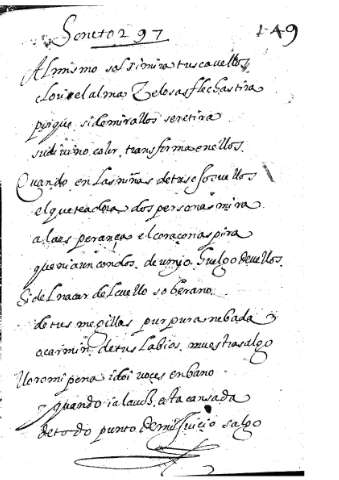 Soneto 297 149
Al mismo sol si mira tus cavellos
clori el alma Zelosas flechas tira
porque si de mirallos se retira
su divino color transforma en ellos
Quando en las niñas de tus ojos vellos
el que te adora dos personas mira
a la esperança el coraçon aspira
que ni aun con dos de un ojo huelgo de vellos
Si de l nacar de l cuello soberano
de tus megillas purpura nebada
o carmin de tus labios muestras algo
lloro mi pena i doi voces en bano
y quando ia la voz esta cansada
de todo punto de mi Juicio salgo